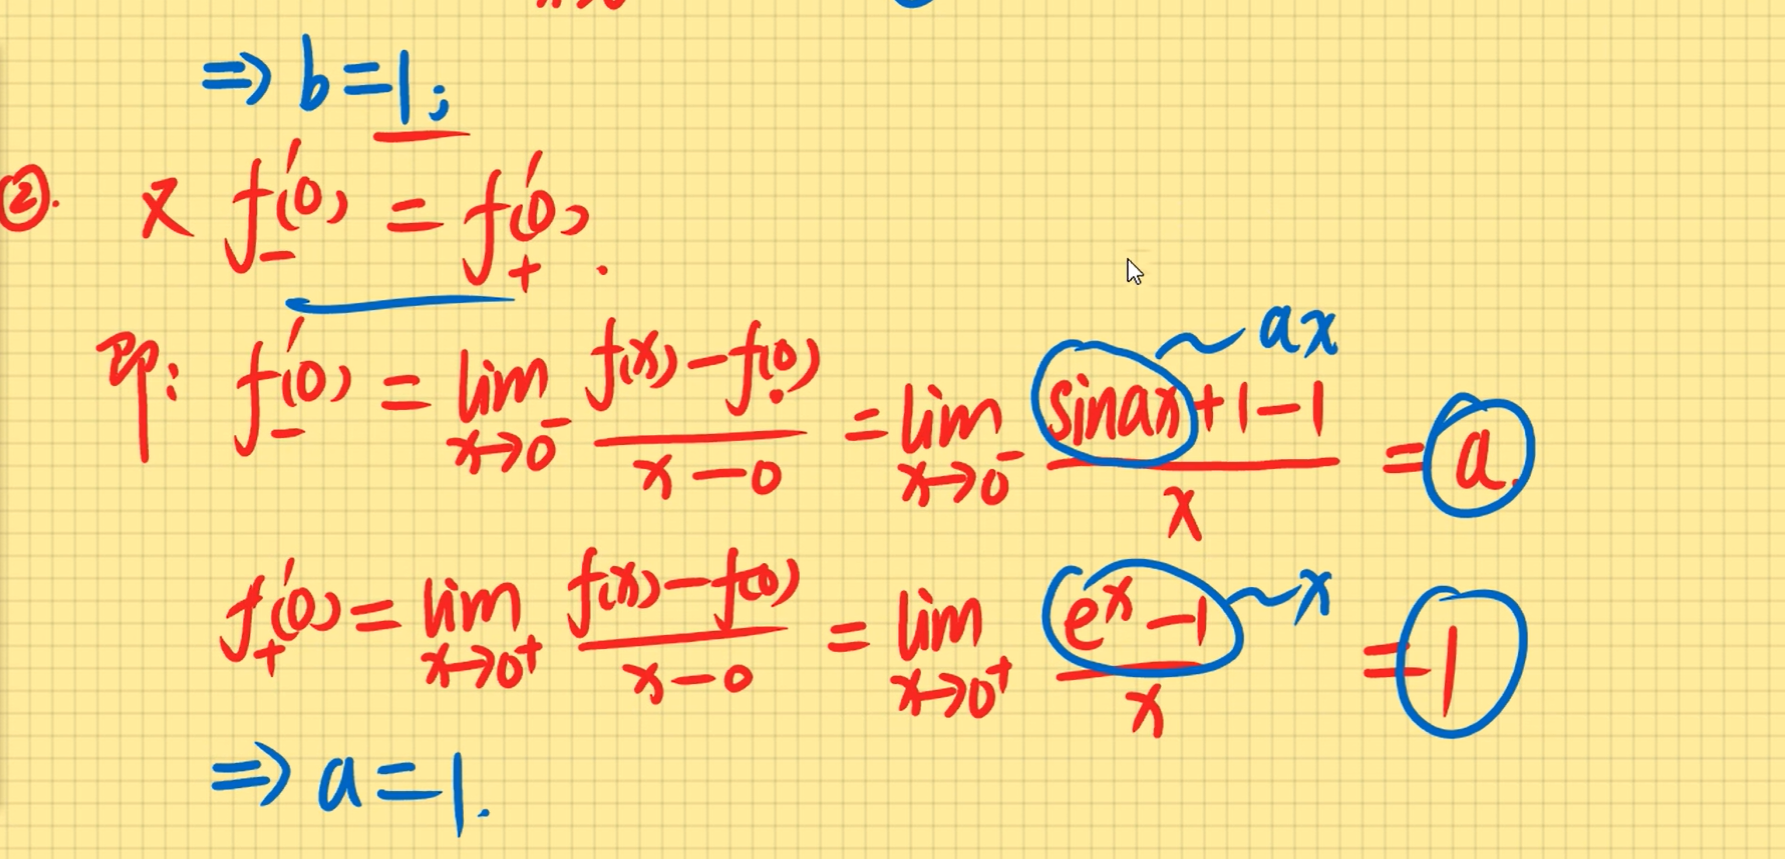 ⇒ b=1;
②. 又 f'₋(0) = f'₊(0).
即: f'₋(0) = lim x→0⁻ (f(x)-f(0))/(x-0) = lim x→0⁻ (sinax+1-1)/x = a.
~ax
f'₊(0) = lim x→0⁺ (f(x)-f(0))/(x-0) = lim x→0⁺ (eˣ-1)/x = 1
~x
⇒ a=1.